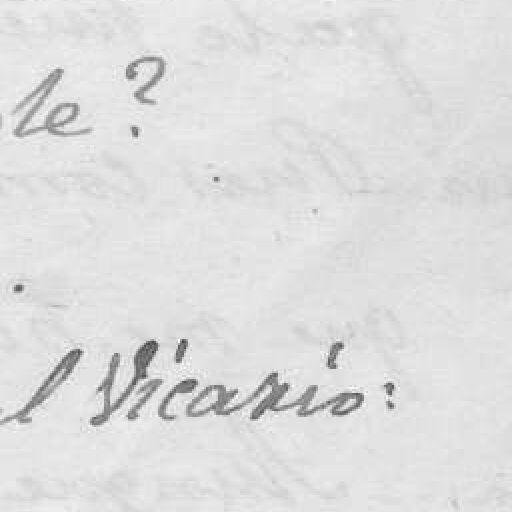 le?
l Vicario: